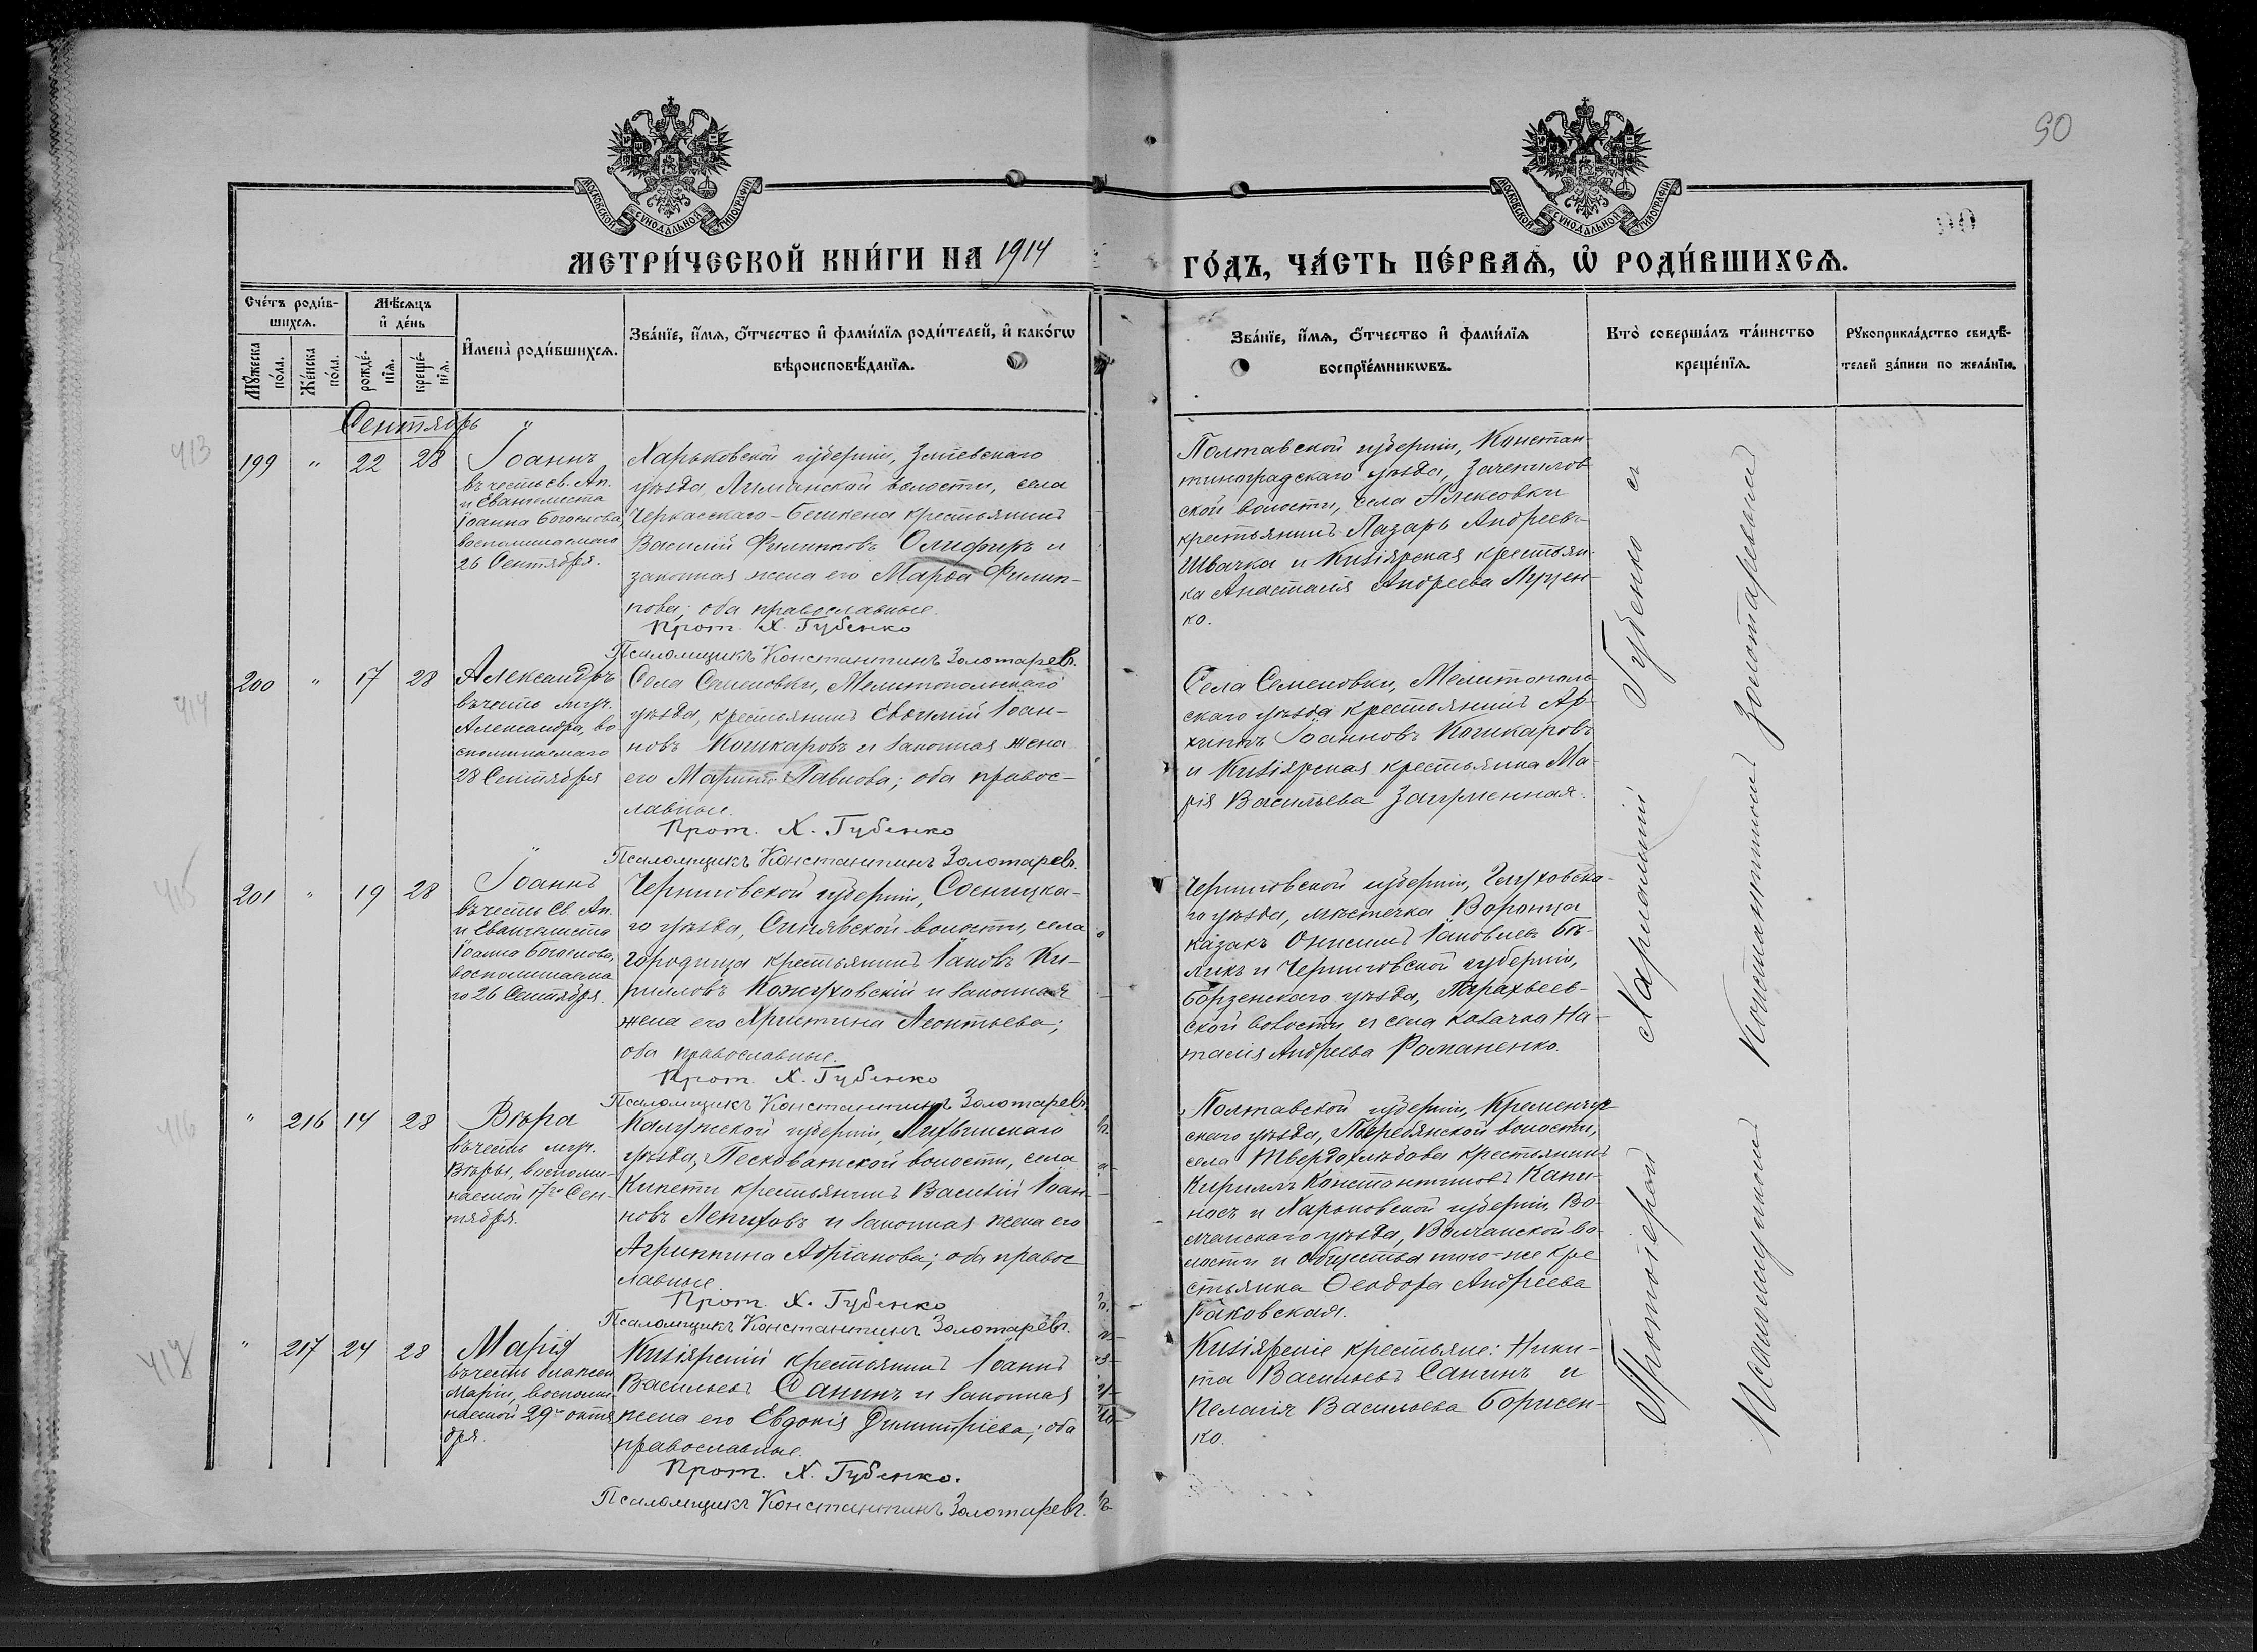 90
МОСКОВСКОЙ СУНОДАЛЬНОЙ ТИПОГРАФІИ
МОСКОВСКОЙ СУНОДАЛЬНОЙ ТИПОГРАФІИ
МЕТРИ́ЧЕСКОЙ КНИ́ГИ НА 1914
ГО́ДЪ, ЧА́СТЬ ПЕ́РВАѦ, Ѡ҆ РОДИ́ВШИХСѦ.
Сче́тъ роди́в-
шихсѧ.
Мѣ́сѧцъ
и҆ де́нь
Мꙋ́жеска
по́ла.
Же́нска
по́ла.
рожде́-
нїѧ.
креще́-
нїѧ.
И҆мена̀ роди́вшихсѧ.
Зва́нїе, и҆́мѧ, ѻ҆́тчество и҆ фами́лїѧ роди́телей, и҆ како́гѡ
вѣроисповѣ́данїѧ.
Зва́нїе, и҆́мѧ, ѻ҆́тчество и҆ фами́лїѧ
воспрїе́мникѡвъ.
Кто̀ соверша́лъ та́инство
креще́нїѧ.
Рꙋкоприкла́дство свидѣ́-
телей за́писи по жела́нїю.
Сентябрь
413
199 " 22 28
Іоаннъ
въ честь св. Ап.
и Евангелиста
Іоанна Богослова,
воспоминаемаго
26 Сентября.
Харьковской губерніи, Зміевскаго
уѣзда, Лиманской волости, села
Черкасскаго-Бишкена крестьянинъ
Василій Филипповъ Олифиръ и
законная жена его Марѳа Филип-
пова; оба православные.
Прот. Х. Губенко
Псаломщикъ Константинъ Золотаревъ.
Полтавской губерніи, Констан-
тиноградскаго уѣзда, Зачепилов
ской волости, села Алексовки
крестьянинъ Лазарь Андреевъ
Швачка и Кизіярская крестьян-
ка Анастасія Андреева Луцен-
ко.
414
200 " 17 28
Александръ
въ честь муч.
Александра, во
споминаемаго
28 Сентября
Села Семеновки, Мелитопольскаго
уѣзда, крестьянинъ Евѳимій Іоан-
новъ Кошкаровъ и законная жена
его Марина Павлова; оба правос-
лавные.
Прот. Х. Губенко
Псаломщикъ Константинъ Золотаревъ.
Села Семеновки, Мелитополь
скаго уѣзда крестьянинъ Ар-
хиппъ Іоанновъ Кошкаровъ
и Кизіярская крестьянка Ма-
рія Васильева Загуменная.
415
201 " 19 28
Іоаннъ
въ честь Св. Ап.
и Евангелиста
Іоанна Богослова,
воспоминаема
го 26 Сентября.
Черниговской губерніи, Сосницка-
го уѣзда, Синявской волости, села
Городища крестьянинъ Іаковъ Ки-
рилловъ Кожуховскій и законная
жена его Христина Леонтьева;
оба православные.
Прот. Х. Губенко
Псаломщикъ Константинъ Золотаревъ.
Черниговской губерніи, Глуховска-
го уѣзда, мѣстечка Воронца
казакъ Онисимъ Іаковлевъ Бѣ-
ликъ и Черниговской губерніи,
Борзенскаго уѣзда,
ской волости и села казачка На-
талія Андреева Романенко.
416
" 216 14 28
Вѣра
въ честь муч.
Вѣры, воспоми-
наемой 17го Сен-
тября.
Калужской губерніи, Лихвинскаго
уѣзда, Песковатской волости, села
Кипети крестьянинъ Василій Іоан-
новъ Лепиховъ и законная жена его
Агриппина Адріанова; оба правос
лавные.
Прот. Х. Губенко
Псаломщикъ Константинъ Золотаревъ.
Полтавской губерніи, Кременчуг
скаго уѣзда, волости,
села Твердохлѣбова крестьянинъ
Кириллъ Константиновъ Капи-
носъ и Харьковской губерніи, Во-
лчанскаго уѣзда, Волчанской во-
лости и общества того-же кре
стьянка Ѳеодора Андреева
Раковская.
417
" 217 24 28
Марія
въ честь блажен
Маріи, воспоми-
наемой 29го октя
бря.
Кизіярскій крестьянинъ Іоаннъ
Васильевъ Санинъ и законная
жена его Евдокія Димитріева; оба
православные.
Прот. Х. Губенко.
Псаломщикъ Константинъ Золотаревъ.
Кизіярскіе крестьяне: Ники-
та Васильевъ Санинъ и
Пелагія Васильева Борисен-
ко.
Протоіерей Харлампій Губенко съ
Псаломщикомъ Константиномъ Золотаревымъ